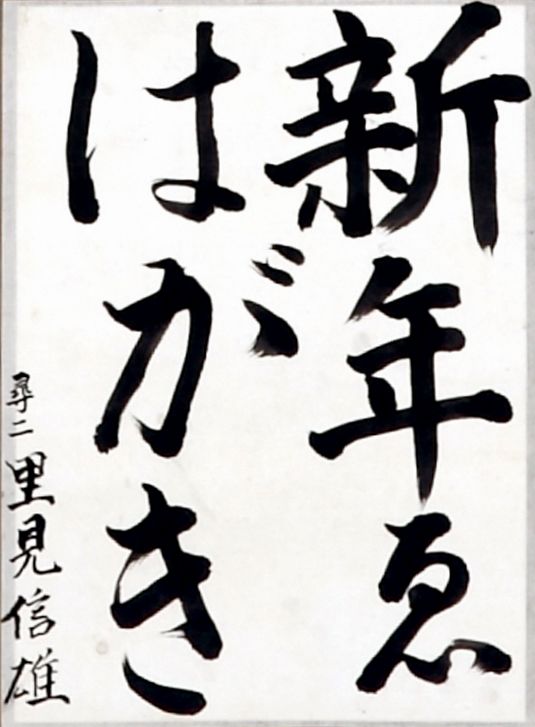 新年ゑ
はがき
尋二 里見信雄